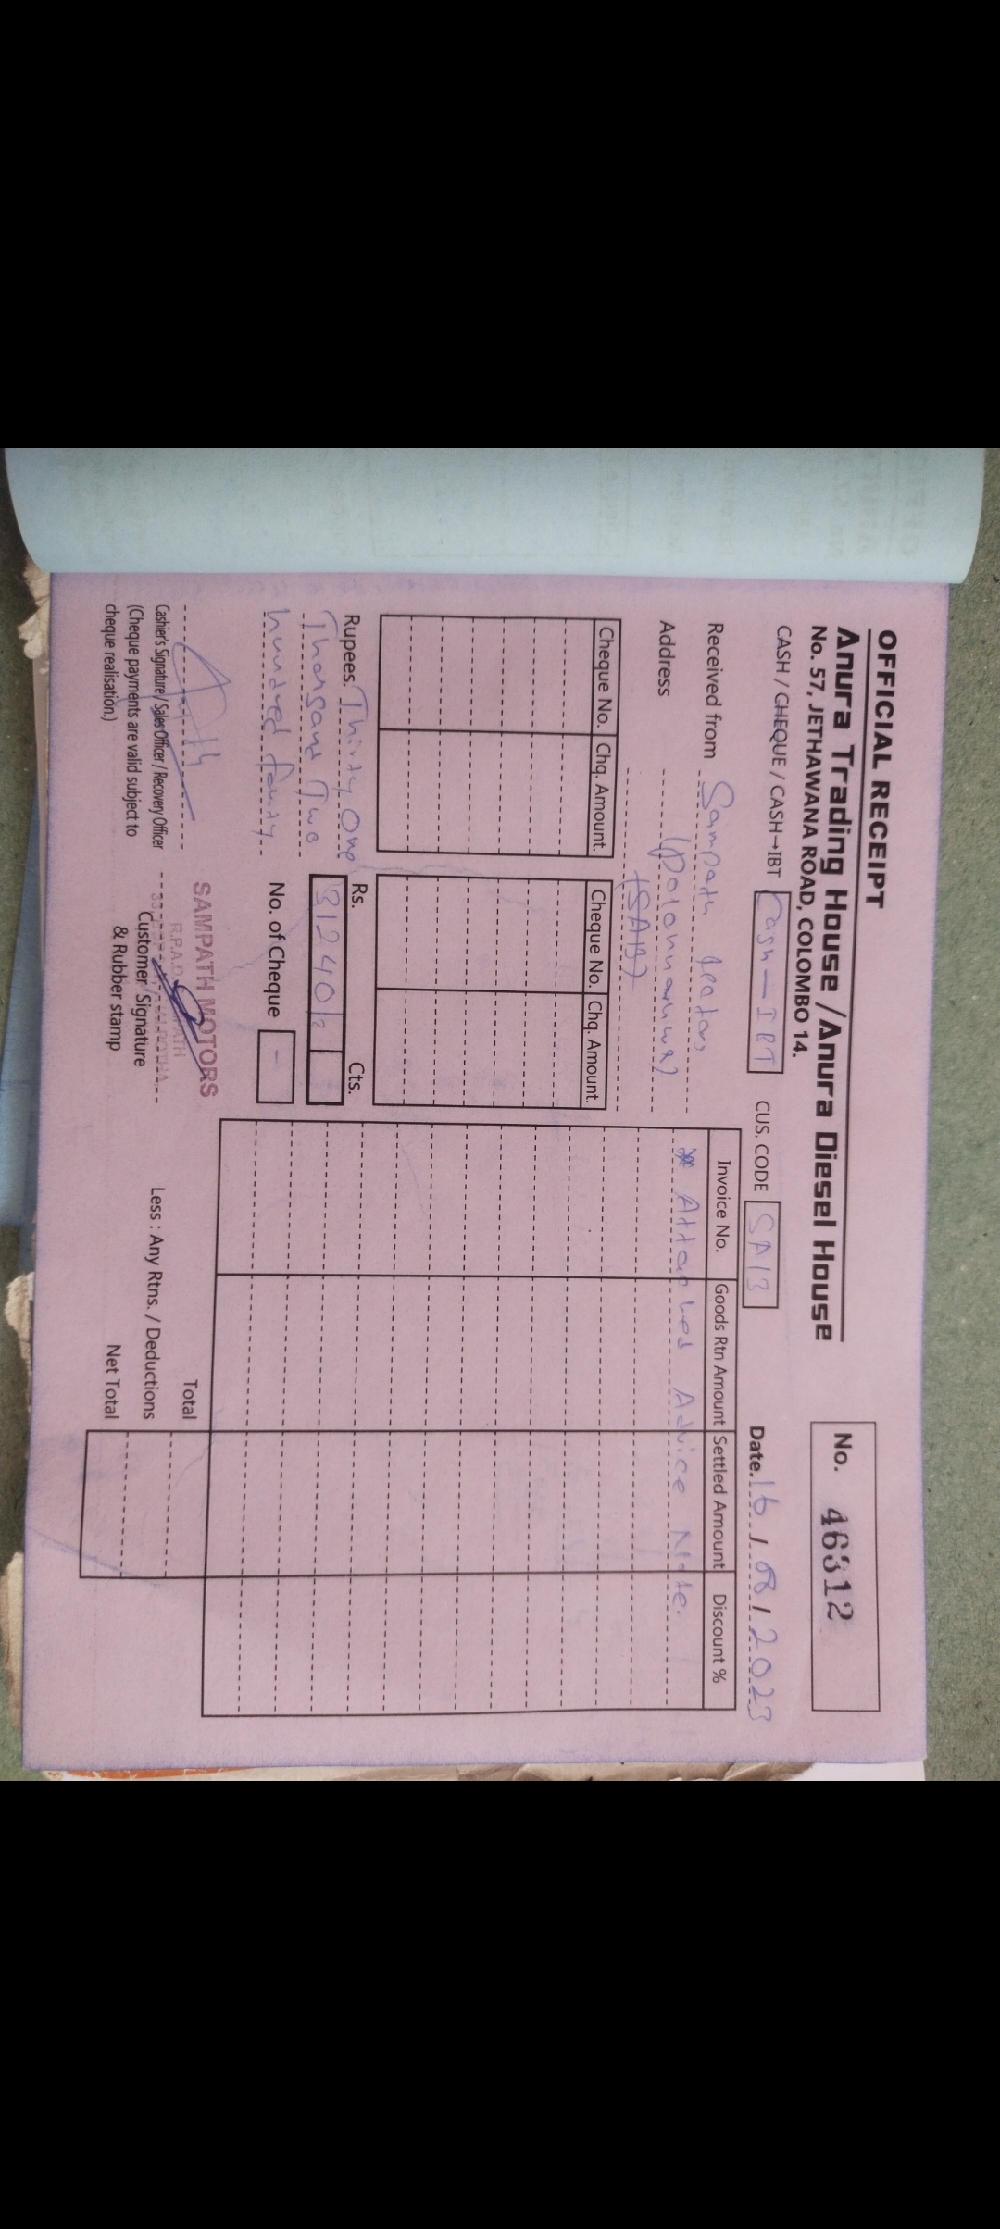 OFFICIAL RECEIPT
Anura Trading House /Anura Diesel House
No. 57, JETHAWANA ROAD, COLOMBO 14.
No. 46312
CASH / CHEQUE / CASH→IBT Cash - IBT
CUS. CODE SA13
Date. 16 / 08 / 2023
Received from Sampath
Address
Cheque No. Chq. Amount Cheque No. Chq. Amount
Invoice No. Goods Rtn Amount Settled Amount Discount %
* Attached Advice Note.
Rupees. Thirty One
Thousand Two
hundred fourty
Rs. Cts.
31240
No. of Cheque -
Total
Less : Any Rtns. / Deductions
Net Total
SAMPATH MOTORS
Cashier's Signature / Sales Officer / Recovery Officer
(Cheque payments are valid subject to
cheque realisation)
Customer Signature
& Rubber stamp